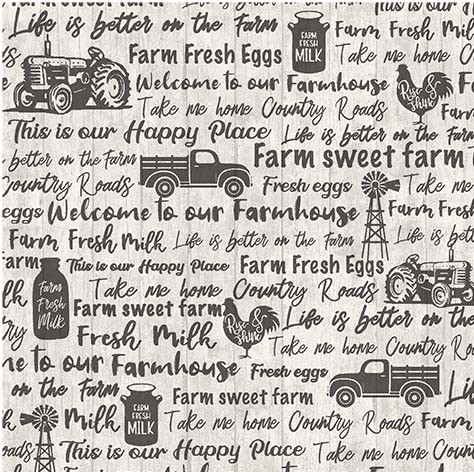 Life is better on the Farm
Farm Fresh Milk
FARM FRESH MILK
Farm sweet farm
Farm Fresh Eggs
Take me home
Welcome to our Farmhouse
Rise & Shine
Take me home Country Roads
This is our Happy Place
Life is better on the Farm
better on the Farm
Farm sweet farm
Country Roads
Fresh eggs
Take me
eggs Welcome to our Farmhouse
Farm Fresh
Farm Fresh Milk
Life is better on the Farm
Life is better
This is our Happy Place
Farm Fresh Eggs
Farm Fresh Milk
Take me home Country Roads
Farm sweet farm
Rise & Shine
Life is better on the
Fresh Milk
Take me home Country
to our Farmhouse
Fresh eggs
on the Farm
Farm sweet farm
Milk
FARM FRESH MILK
Take me home Country Roads
This is our Happy Place
Life is better